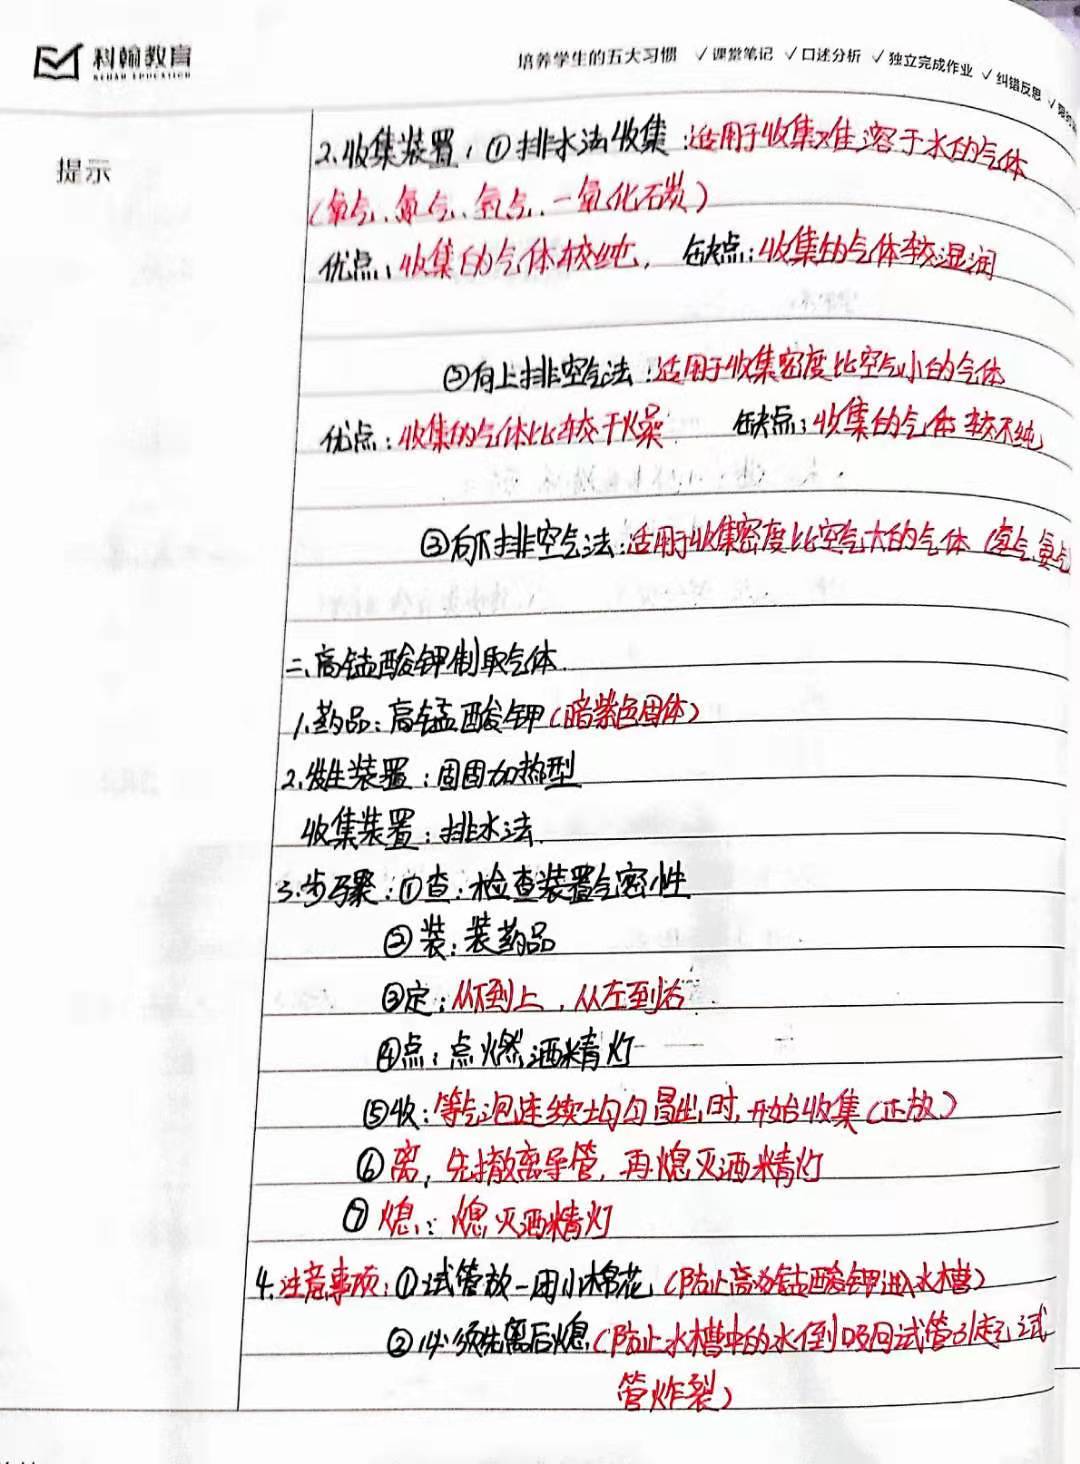 科翰教育
KEHAN EDUCATION
培养学生的五大习惯 ✓课堂笔记 ✓口述分析 ✓独立完成作业 ✓纠错反思 ✓
提示
2.收集装置:①排水法收集:适用于收集难溶于水的气体
(氧气、氮气、氢气、一氧化碳)
优点:收集的气体较纯, 缺点:收集的气体较湿润
②向上排空气法:适用于收集密度比空气小的气体
优点:收集的气体比较干燥 缺点:收集的气体较不纯
③向下排空气法:适用于收集密度比空气大的气体
二、高锰酸钾制取气体.
1.药品:高锰酸钾(暗紫色固体)
2.发生装置:固固加热型
收集装置:排水法.
3.步骤:①查:检查装置气密性
②装:装药品
③定:从下到上,从左到右
④点:点燃酒精灯
⑤收:等气泡连续均匀冒出时,开始收集(正放)
⑥离,先撤离导管,再熄灭酒精灯
⑦熄:熄灭酒精灯
4.注意事项:①试管放一团小棉花(防止高锰酸钾进入水槽)
②必须先离后熄(防止水槽中的水倒吸回试管引起试
管炸裂)